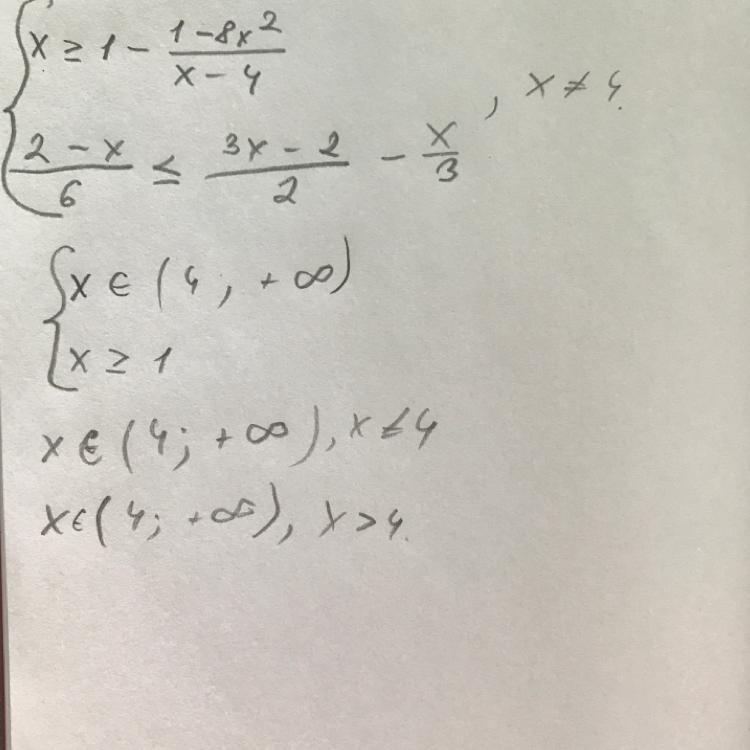 x ≥ 1 - (1-8x²)/(x-4)
(2-x)/6 ≤ (3x-2)/2 - x/3 , x ≠ 4.
x ∈ (4; +∞)
x ≥ 1
x ∈ (4; +∞), x ≠ 4
x ∈ (4; +∞), x > 4.